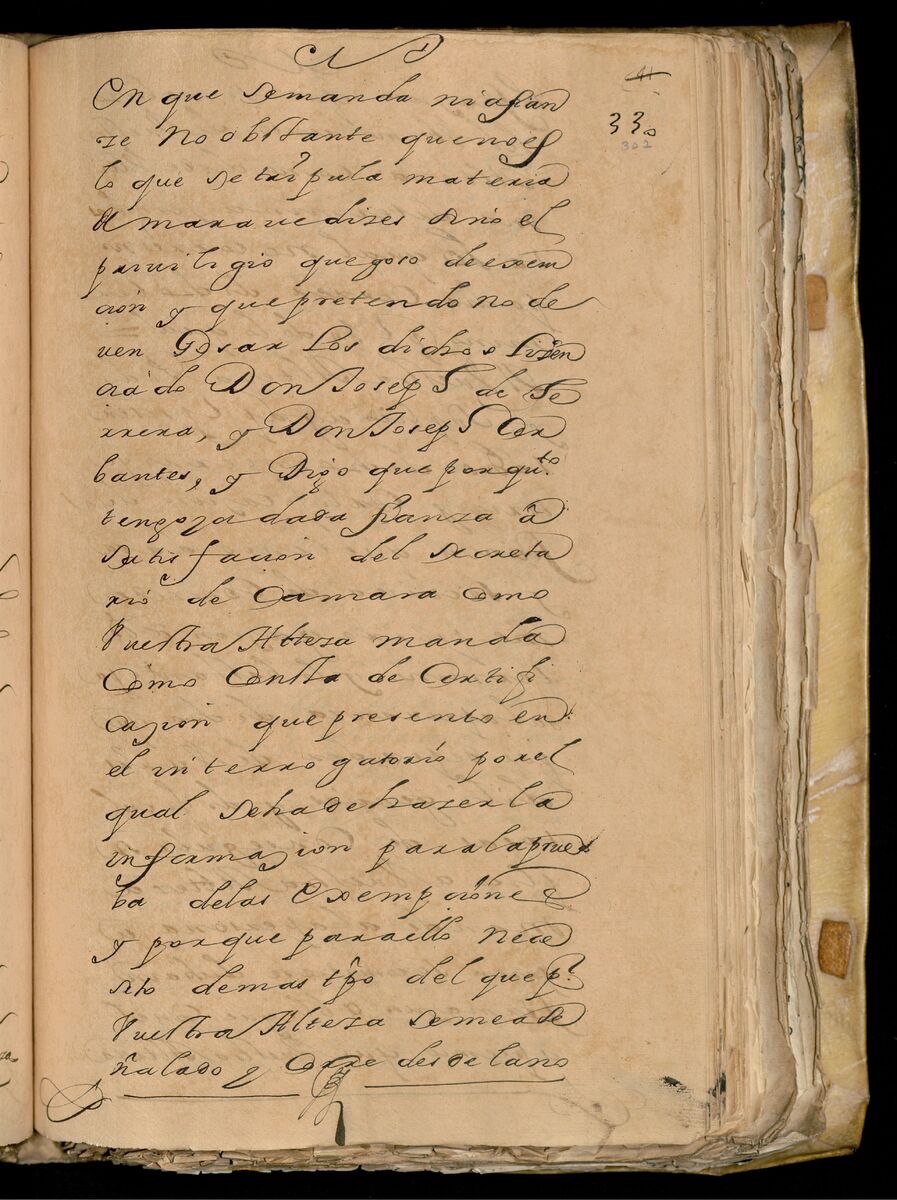 41
33
302
En que se manda ni afian
ze No obstante que no es
lo que se tripula materia
de maravedises sino el
previlegio que goso de exem
ción y que pretendo no de
ven Gosar los dichos lizen
ciádo Don Joseph de He
rrera, y Don Joseph Cer
bantes, y Digo que por qto.
tengo ya dada fianza â
satisfación del secreta
rió de Camara Como
Vuestra Alteza manda
Cómo Consta de Certifi
cazion que presento en
el interrogatorío por el
qual se ha de hazer la
informazion para la prue
ba de las exempcíones
y porque para ello nece
sito de mas tpo del que pr.
Vuestra Alteza se me a se
ñalado y Corre desde la no